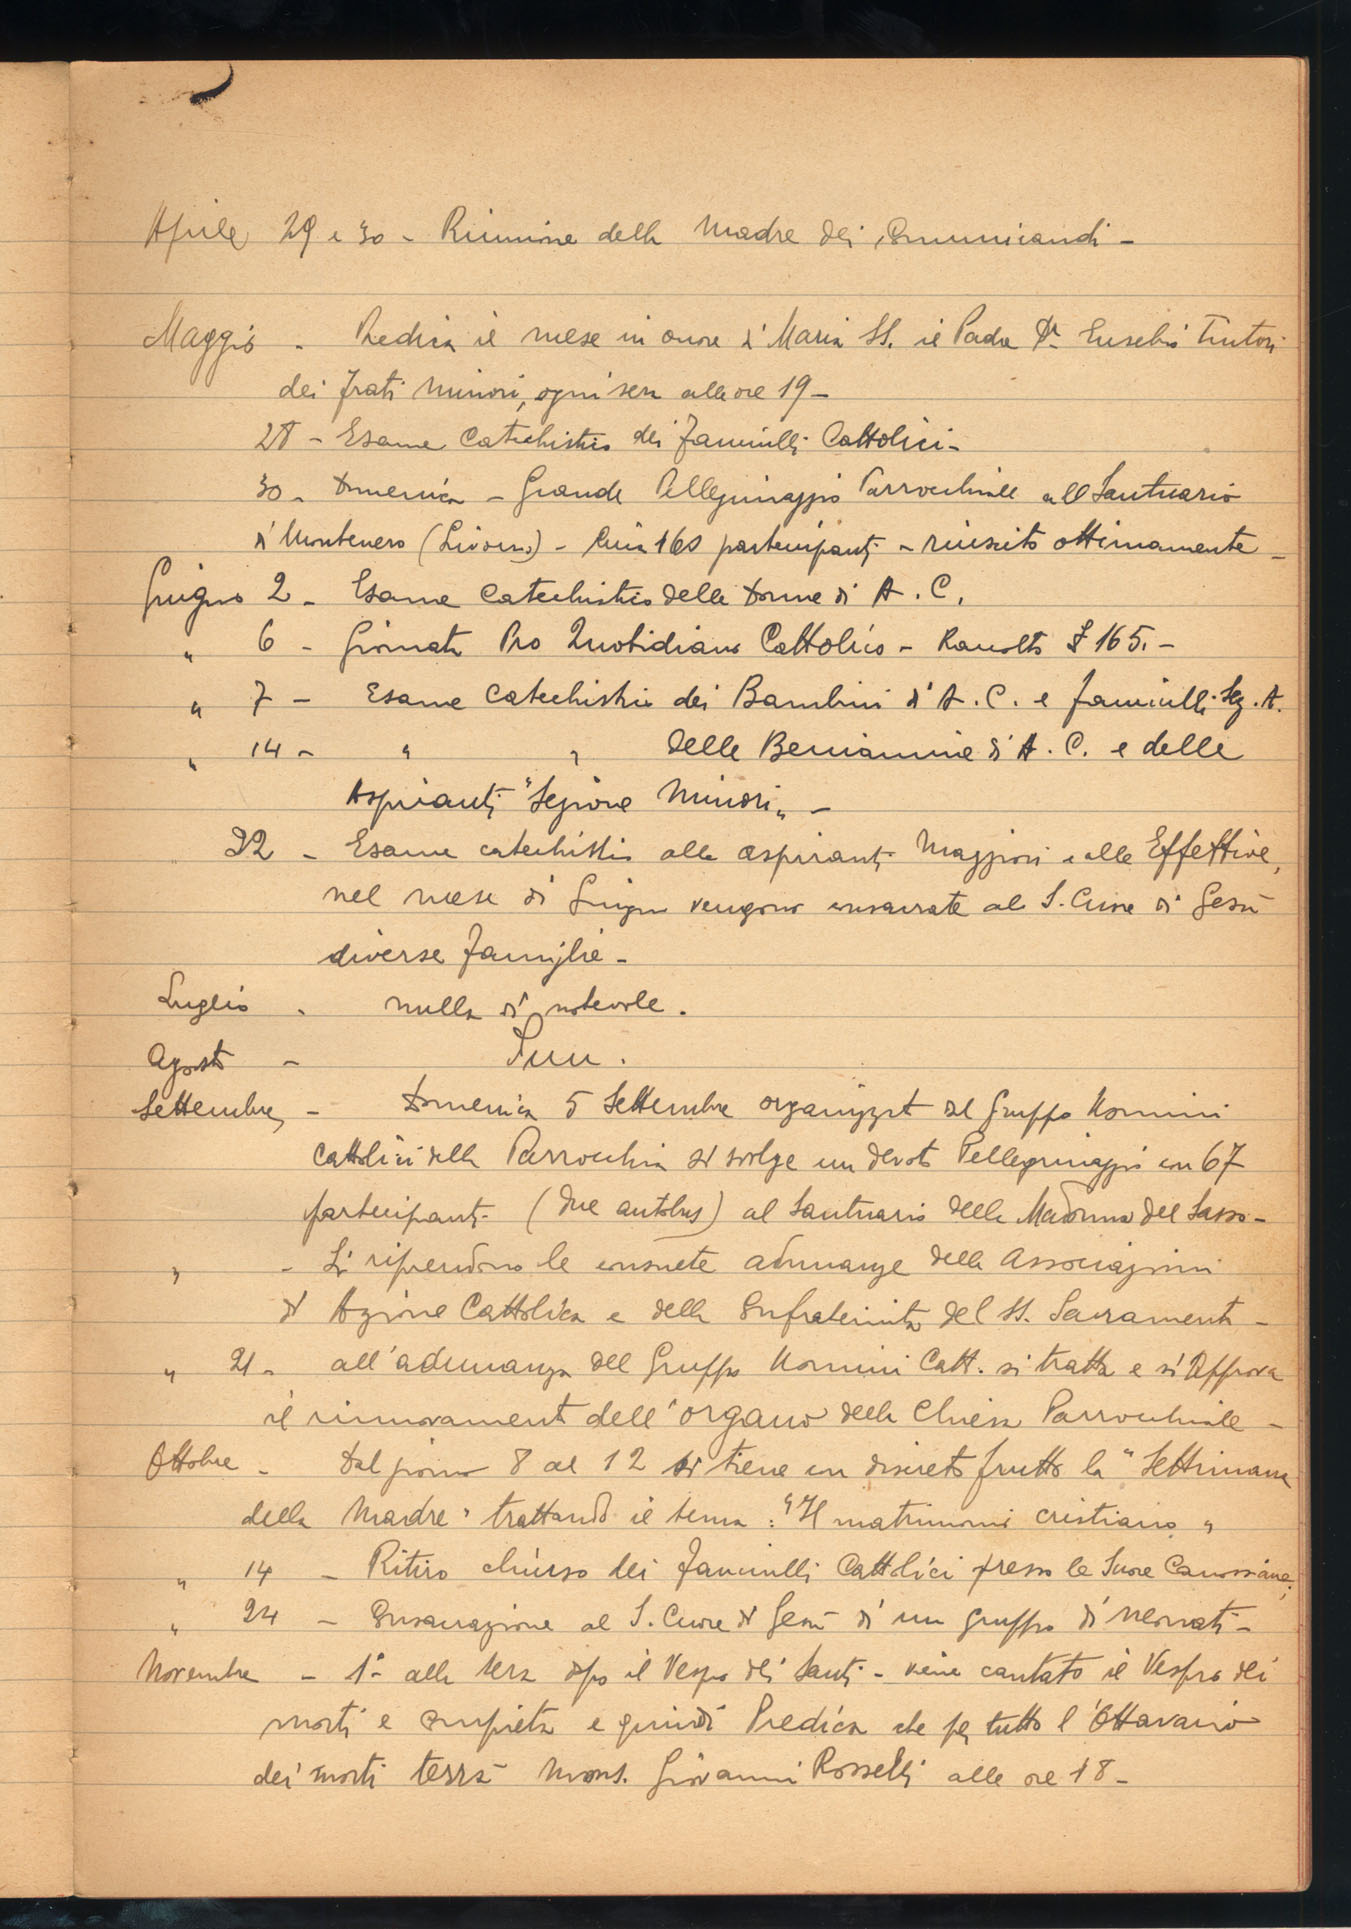 Aprile 29 e 30 - Riunione delle Madre dei Comunicandi -
Maggio - Predica il mese in onore di Maria SS. il Padre Dr. Eusebio Tintori
dei Frati Minori, ogni sera alle ore 19 -
28 - Esame Catechistico dei Fanciulli Cattolici -
30 - Domenica - Grande Pellegrinaggio Parrocchiale all Santuario
di Montenero (Livorno) - Circa 160 partecipanti - riuscito ottimamente -
Giugno 2 - Esame Catechistico delle Donne di A. C.
" 6 - Giornata Pro Quotidiano Cattolico - Raccolto £ 165. -
" 7 - Esame Catechistico dei Bambini di A. C. e Fanciulli Sez. A.
" 14 - " " delle Beniamine di A. C. e delle
Aspiranti "Sezione Minori" -
22 - Esame catechistico alle aspiranti Maggiori e alle Effettive,
nel mese di Giugno vengono consacrate al S. Cuore di Gesù
diverse famiglie -
Luglio - nulla di notevole.
Agosto -
Settembre, - Domenica 5 Settembre organizzato dal Gruppo Uomini
Cattolici della Parrocchia si svolge un devoto Pellegrinaggio con 67
partecipanti (due autobus) al Santuario della Madonna del Sasso -
" - Si riprendono le consuete adunanze delle Associazioni
di Azione Cattolica e della Confraternita del SS. Sacramento -
" 21 - all'adunanza del Gruppo Uomini Catt. si tratta e si Approva
il rinnovamento dell'organo della Chiesa Parrocchiale -
Ottobre - Dal giorno 8 al 12 si tiene con discreto frutto la "Settimana
della Madre" trattando il tema: "Il matrimonio cristiano"
" 14 - Ritiro chiuso dei Fanciulli Cattolici presso le Suore Canossiane;
" 24 - Consacrazione al S. Cuore di Gesù di un gruppo di neonati -
Novembre - 1° alla sera dopo il Vespro dei Santi - viene cantato il Vespro dei
morti e compieta e quindi Predica che per tutto l'Ottavario
dei morti terrà Mons. Giovanni Rosselli alle ore 18 -